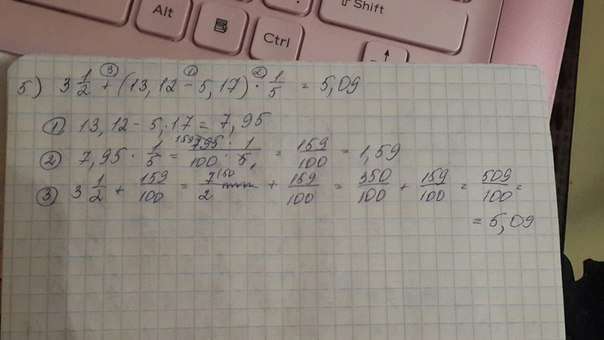 Alt
Ctrl
⇧ Shift
↑
③ ① ②
5) 3 1/2 + (13,12 - 5,17) · 1/5 = 5,09
① 13,12 - 5,17 = 7,95
② 7,95 · 1/5 = 159 795 · 1 / 100 · 5 = 159/100 = 1,59
③ 3 1/2 + 159/100 = 7/2 + 159/100 = 350/100 + 159/100 = 509/100 =
= 5,09